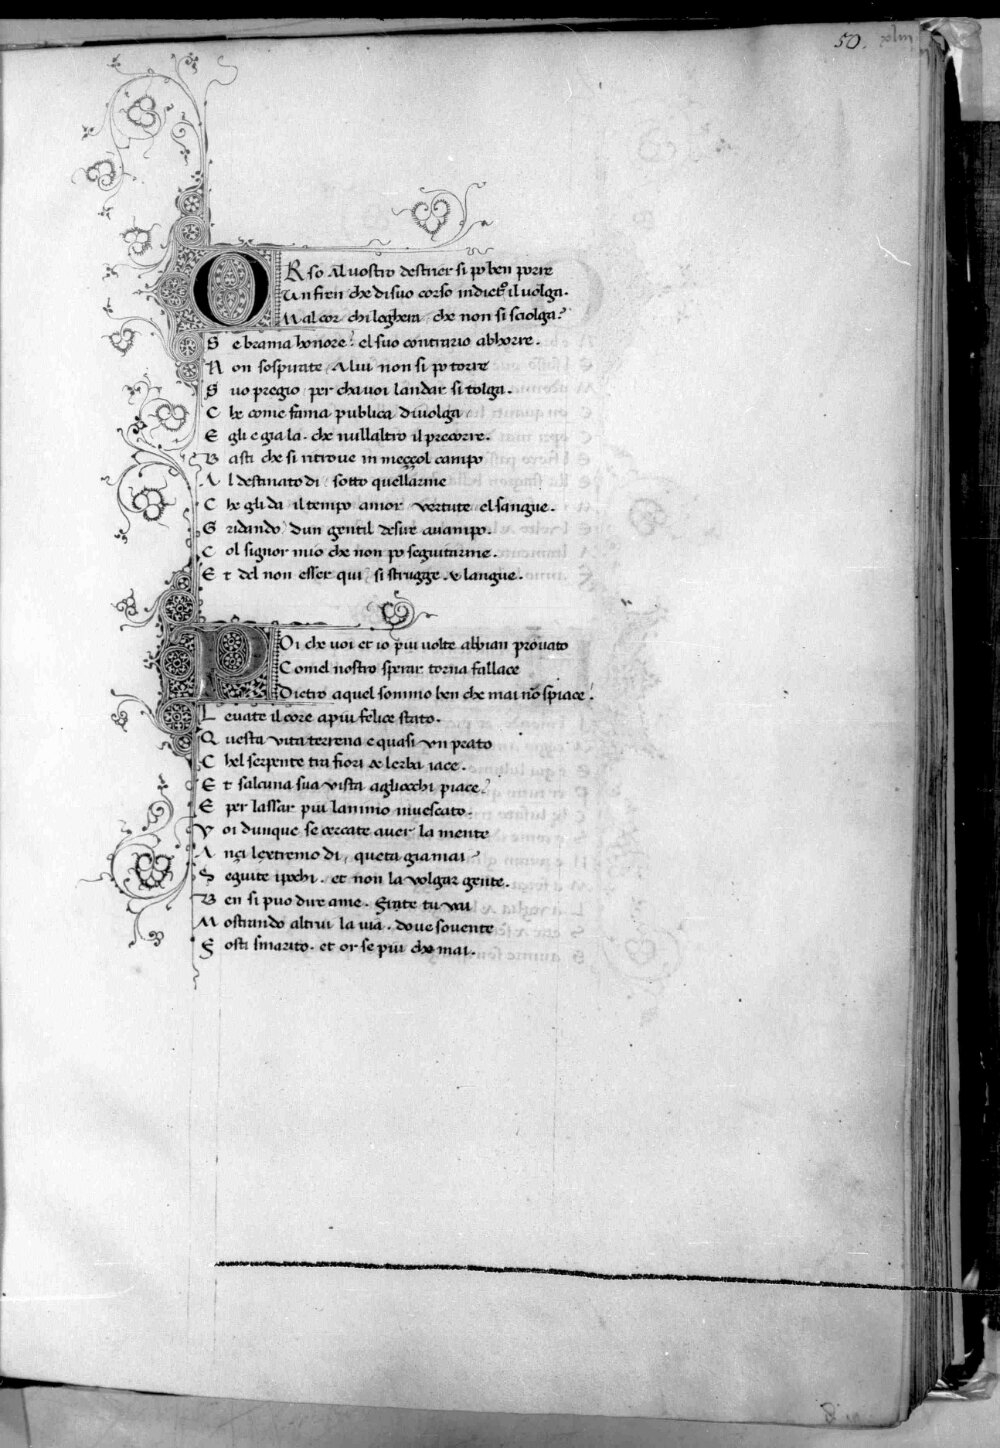 50. xliiij
ORso Al uostro destrier si po ben porre
Un fren che di suo corso indietro il uolga.
Mal cor chi leghera, che non si sciolga?
Se brama honore? el suo contrario abhorre.
Non sospirate, A lui non si po torre
Suo pregio, per cha uoi landar si tolga.
Che come fama publica diuolga
Egli e gia la. che nullaltro il precorre.
Basti che si ritroue in meççol campo
Al destinato di, sotto quellarme
Che gli da il tempo amor vertute el sangue.
Gridando, dun gentil desire auampo.
Col signor mio che non po seguitarme.
Et del non esser qui si strugge & langue.
POi che uoi et io piu uolte abbian prouato
Comel nostro sperar torna fallace
Dietro aquel sommo ben che mai nõ spiace!
Leuate il core apiu felice stato.
Questa vita terrena e quasi vn prato
Chel serpente tra fiori & lerba iace.
Et salcuna sua vista agliocchi piace?
E per lassar piu lanimo inuescato.
Voi dunque se cercate auer la mente
Ançi lextremo di, queta giamai?
Seguite ipochi. et non la volgar gente.
Ben si puo dire ame. Frate tu vai
Mostrando altrui la uia. doue souente
Fosti smarito. et or se piu che mai.